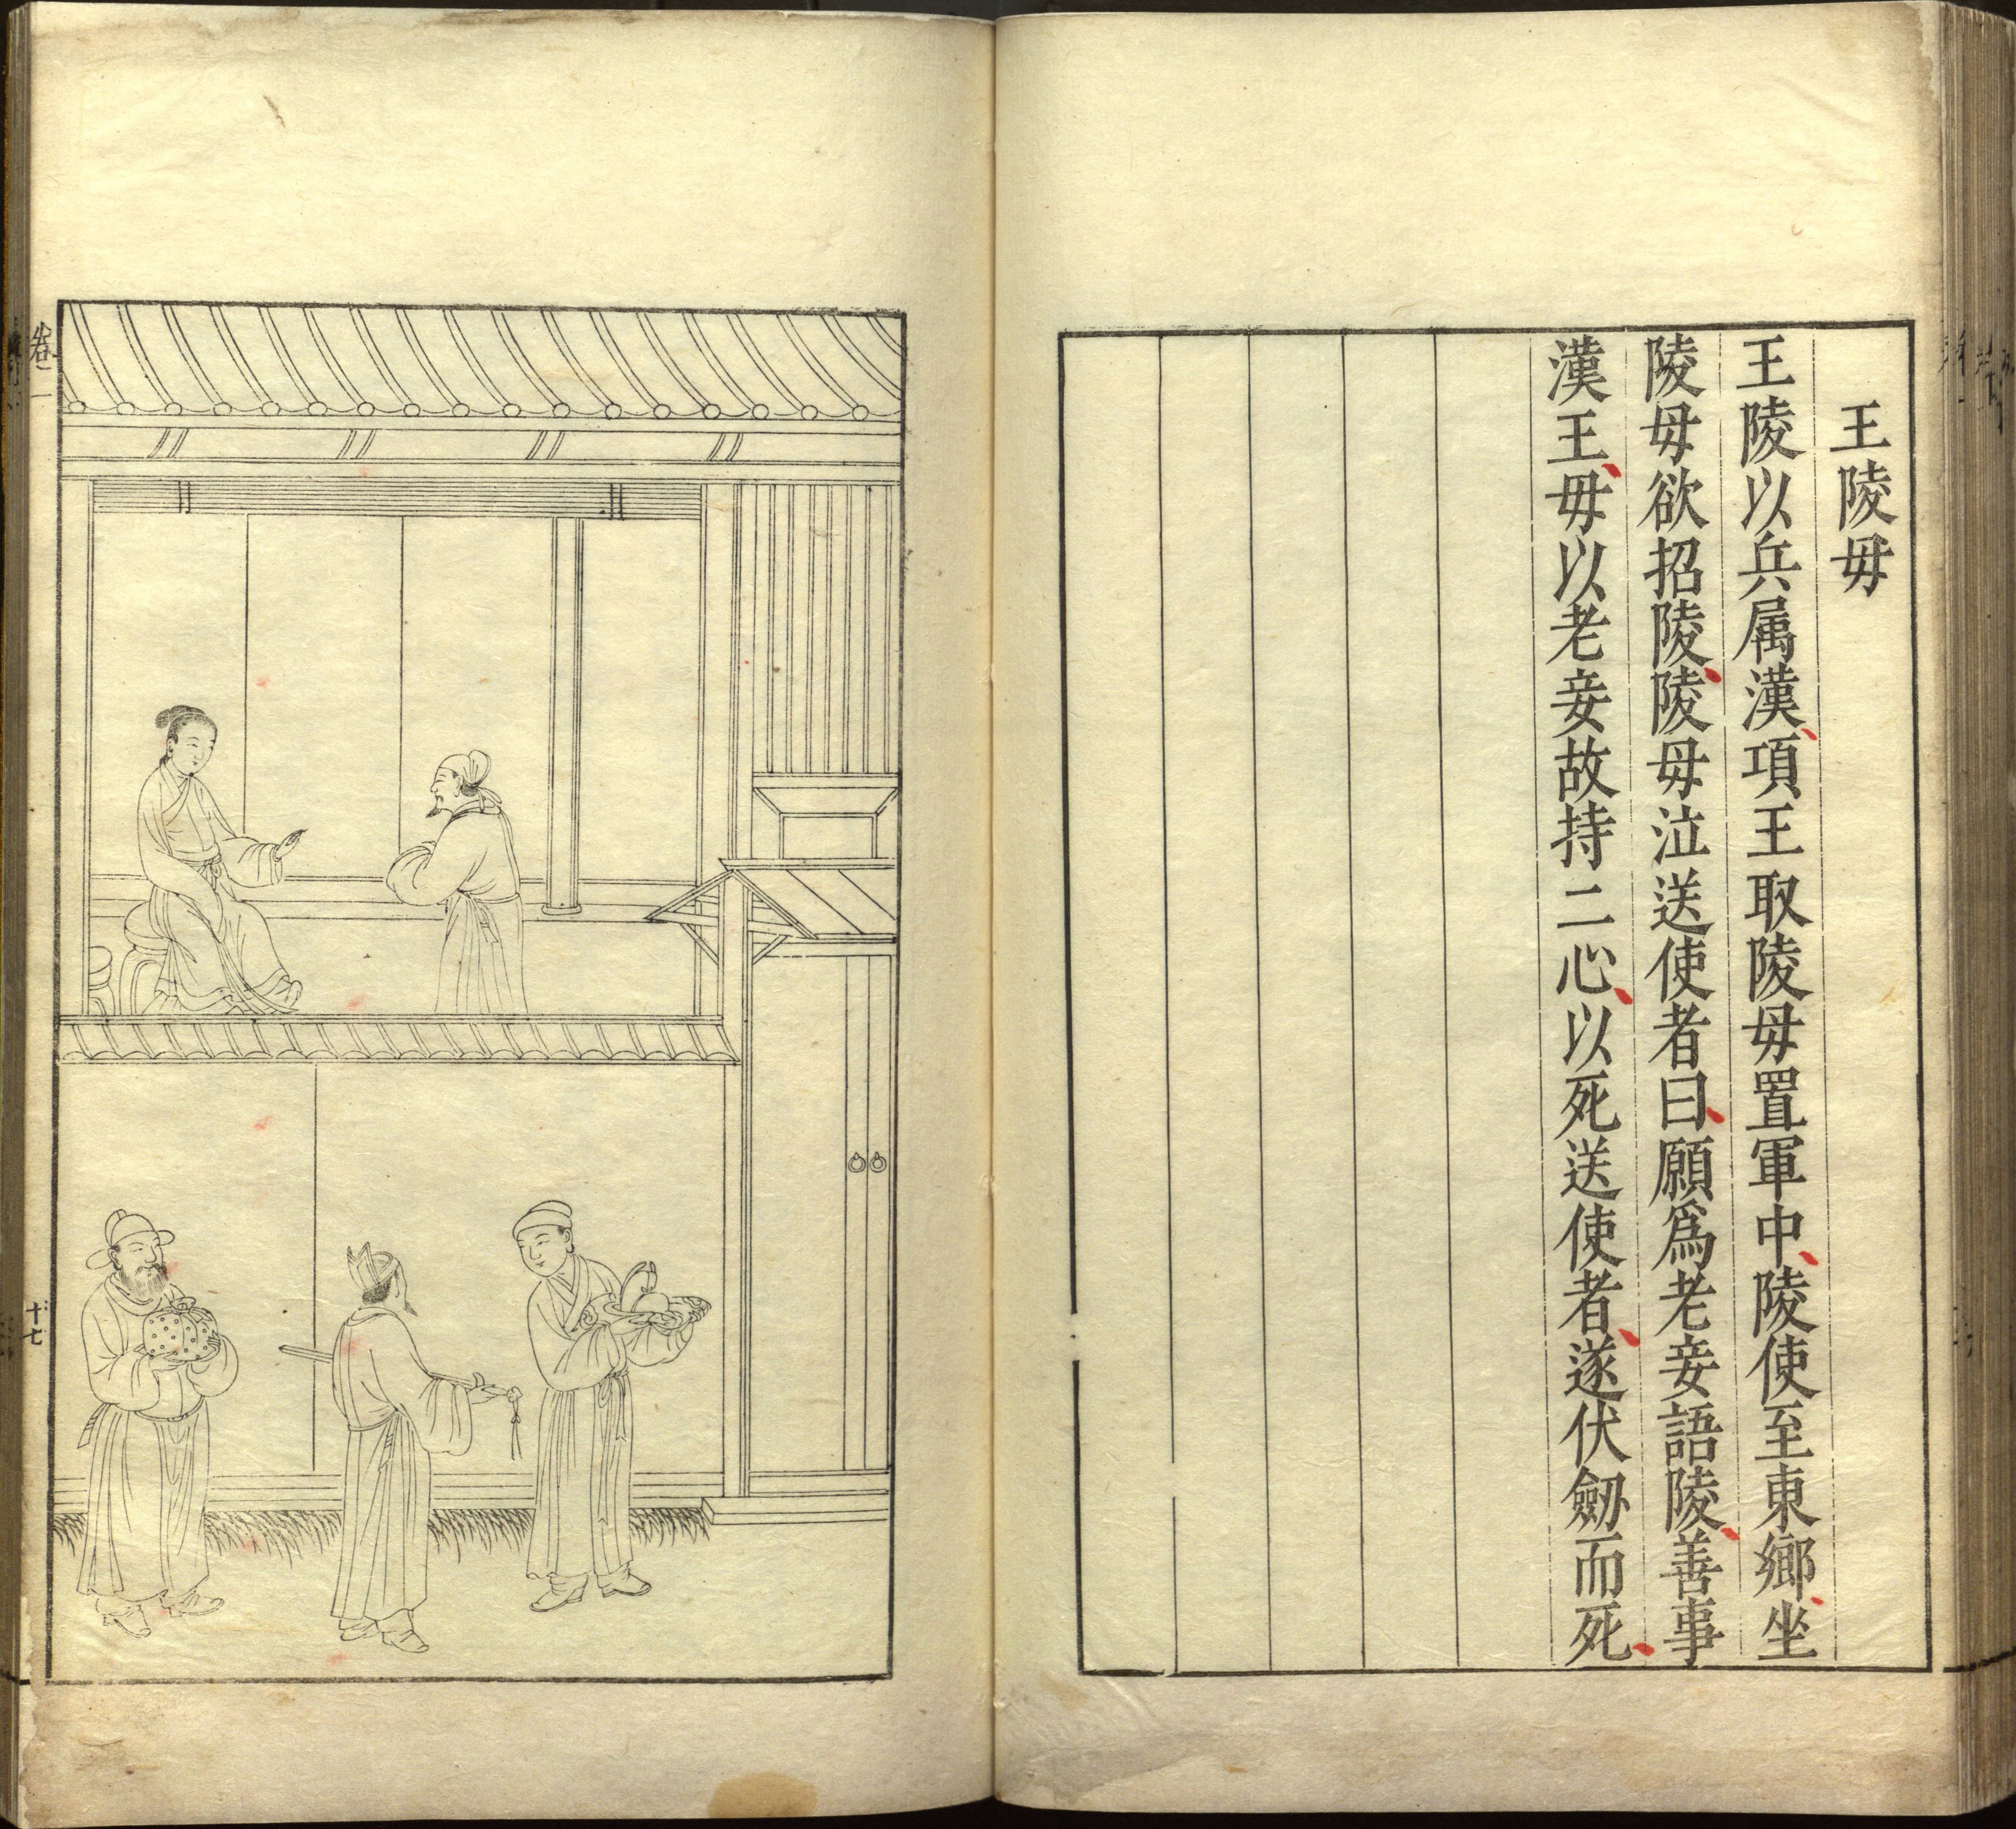 王陵毋
王陵以兵属漢項王取陵毋置軍中陵使至東鄉坐
陵毋欲招陵陵毋泣送使者曰願爲老妾語陵善事
漢王毋以老妾故持二心以死送使者遂伏劒而死
十七